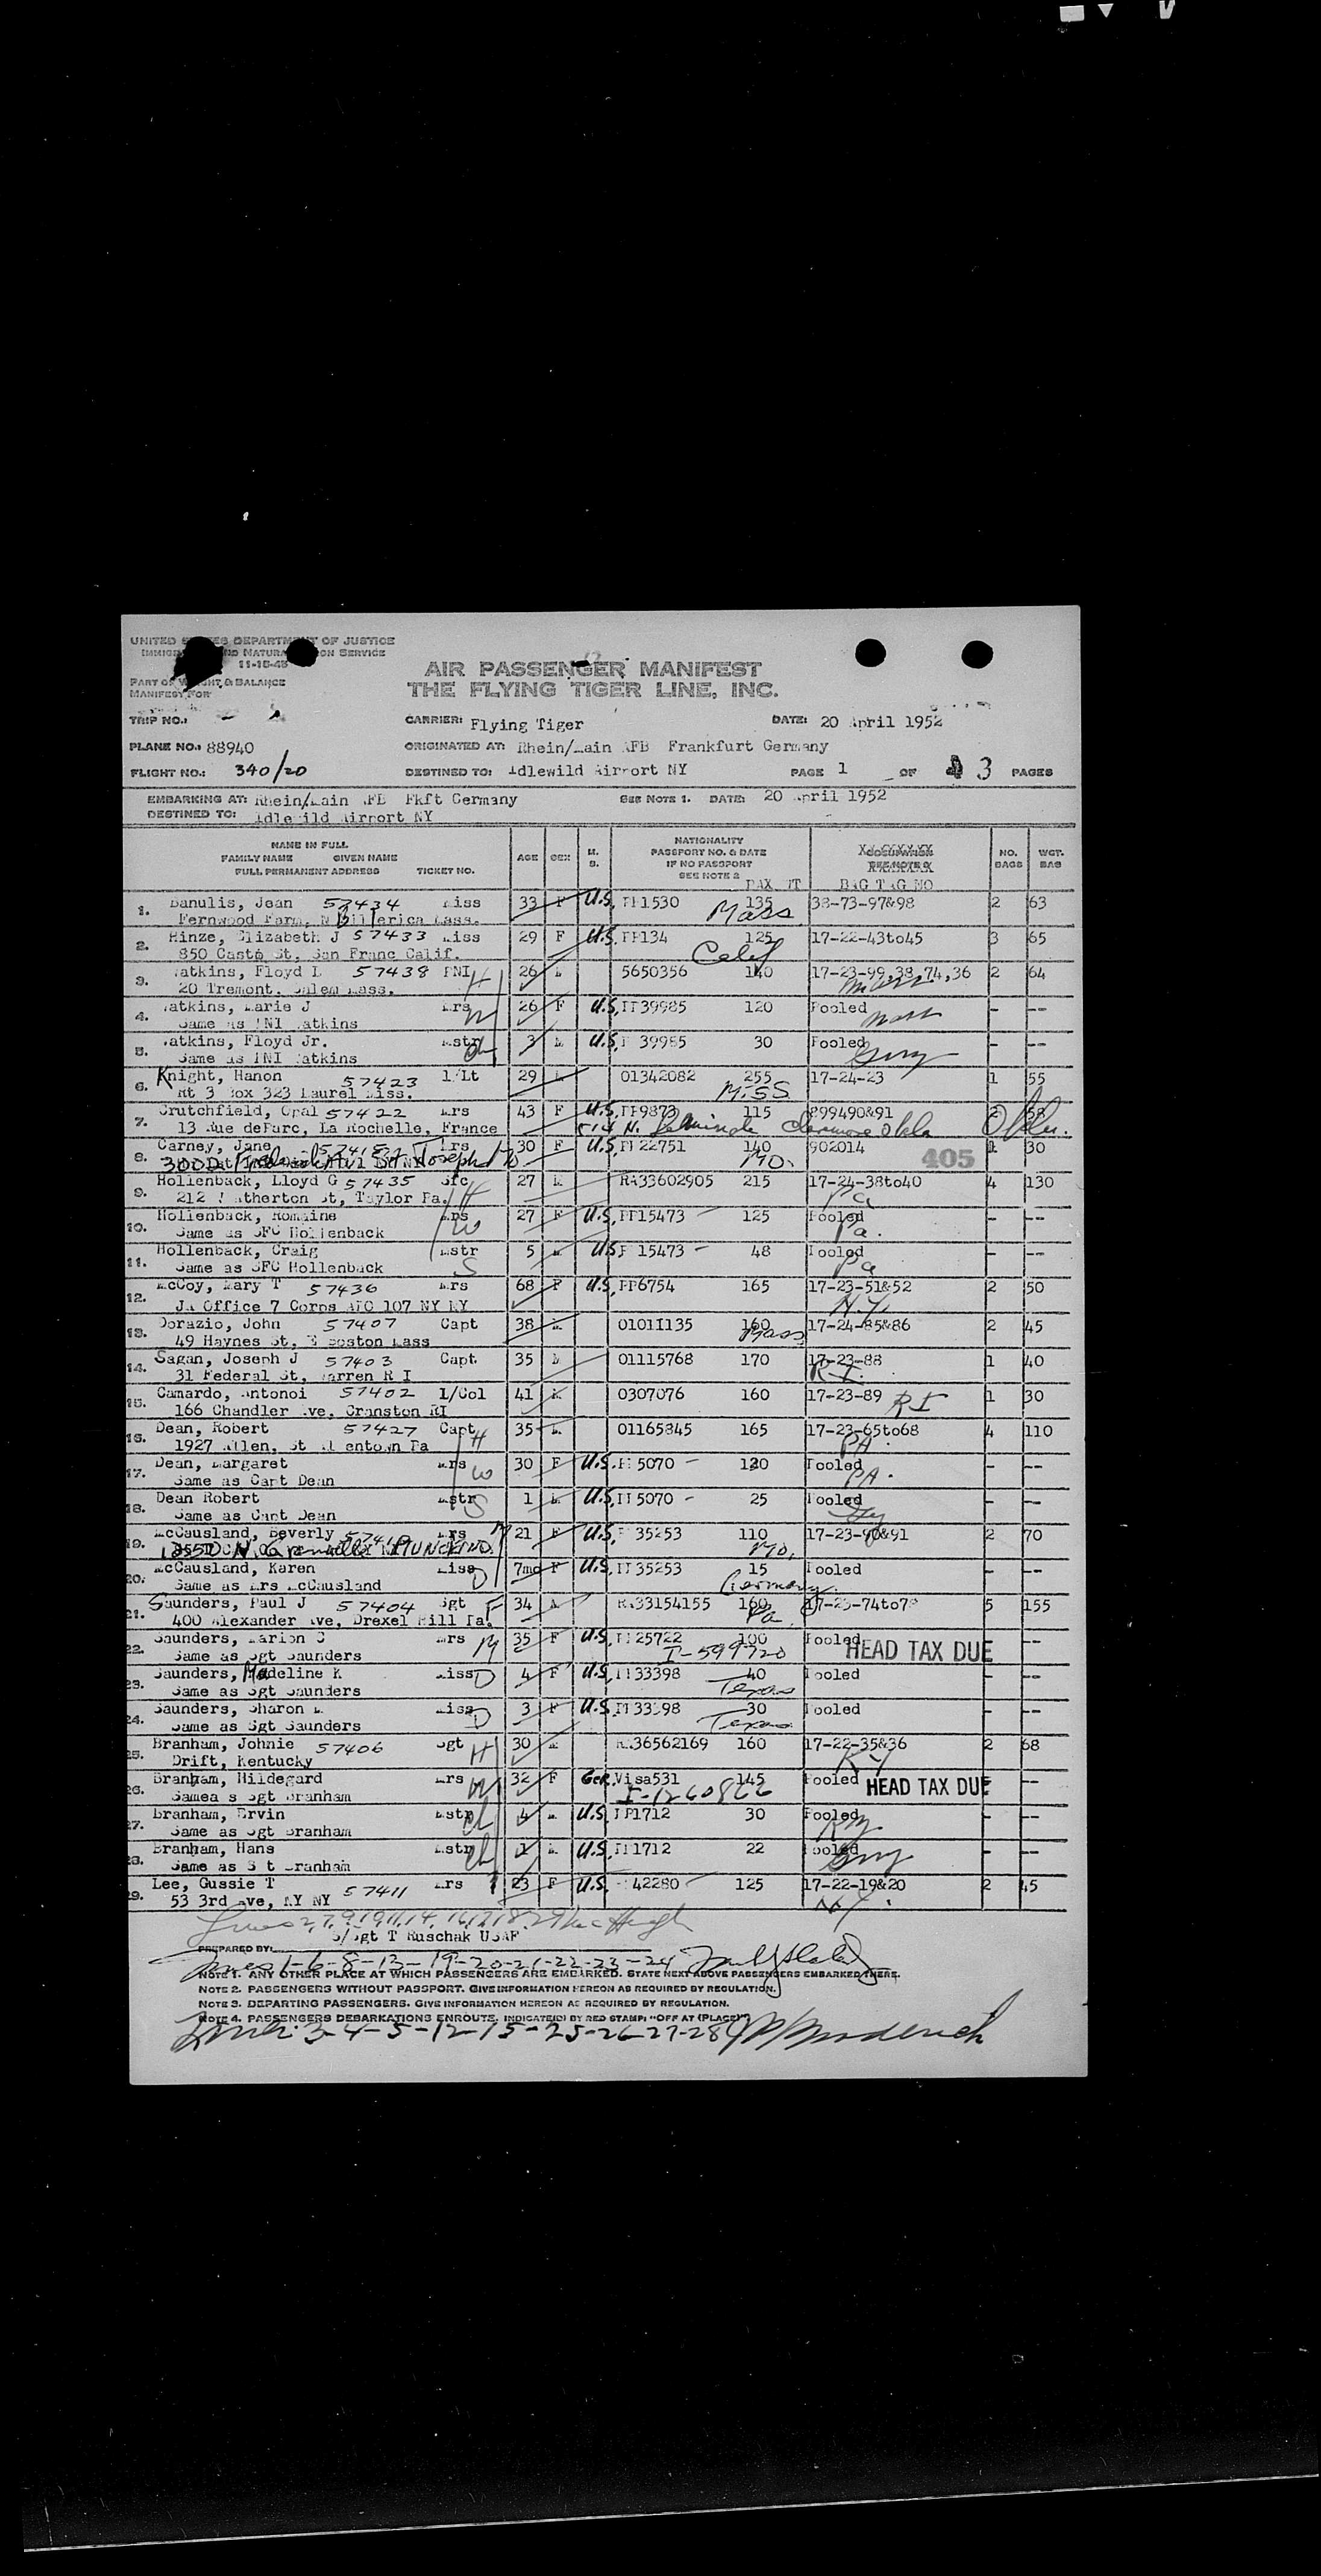 UNITED STATES DEPARTMENT OF JUSTICE
IMMIGRATION AND NATURALIZATION SERVICE
11-15-45
PART OF WEIGHT & BALANCE
MANIFEST FOR
AIR PASSENGER MANIFEST
THE FLYING TIGER LINE, INC.
TRIP NO.: CARRIER: Flying Tiger DATE: 20 April 1952
PLANE NO.: 88940 ORIGINATED AT: Rhein/Main AFB Frankfurt Germany
FLIGHT NO.: 340/20 DESTINED TO: Idlewild Airport NY PAGE 1 OF 3 PAGES
EMBARKING AT: Rhein/Main AFB Fkft Germany SEE NOTE 1. DATE: 20 April 1952
DESTINED TO: Idlewild Airport NY
NAME IN FULL
FAMILY NAME GIVEN NAME
FULL PERMANENT ADDRESS TICKET NO. AGE SEX M. S. NATIONALITY
PASSPORT NO. & DATE
IF NO PASSPORT
SEE NOTE 2 PAX WT
BAG TAG NO NO. BAGS WGT. BAG
1. Danulis, Jean 57434 Miss 33 F U.S. PP1530 135 38-73-97&98 2 63
Fernwood Farm, N Billerica Mass. Mass
2. Hinze, Elizabeth J 57433 Miss 29 F U.S. PP134 125 17-22-43to45 3 65
850 Casto St, San Franc Calif. Calif
3. Watkins, Floyd L 57438 PNI H 26 M 5650356 140 17-23-99,38,74,36 2 64
20 Tremont, Salem Mass. Mass
4. Watkins, Marie J Mrs W 26 F U.S. PP39985 120 Pooled - --
Same as PNI Watkins Mass
5. Watkins, Floyd Jr. Mstr Ch 3 M U.S. P 39985 30 Pooled - --
Same as PNI Watkins Gmy
6. Knight, Hanon 57423 1/Lt 29 M 01342082 255 17-24-23 1 55
Rt 3 Box 323 Laurel Miss. Miss
7. Crutchfield, Opal 57422 Mrs 43 F U.S. PP9873 115 899490&91 2 58
13 Rue deParc, La Rochelle, France 514 N. Claremore Okla Okla.
8. Carney, Jane Mrs 30 F U.S. PP 22751 140 902014 1 30
St Joseph Mo MO. 405
9. Hollenback, Lloyd G 57435 Sfc H 27 M RA33602905 215 17-24-38to40 4 130
212 Atherton St, Taylor Pa. Pa
10. Hollenback, Romaine Mrs W 27 F U.S. PP15473 125 Pooled - --
Same as SFC Hollenback Pa.
11. Hollenback, Craig Mstr S 5 M US P 15473 48 Pooled - --
Same as SFC Hollenback Pa
12. McCoy, Mary T 57436 Mrs 68 F U.S. PP6754 165 17-23-51&52 2 50
JA Office 7 Corps APO 107 NY NY N.Y.
13. Dorazio, John 57407 Capt 38 M 01011135 160 17-24-85&86 2 45
49 Haynes St, E Boston Mass Mass
14. Sagan, Joseph J 57403 Capt 35 M 01115768 170 17-23-88 1 40
31 Federal St, Warren R I R.I.
15. Camardo, Antonoi 57402 L/Col 41 M 0307076 160 17-23-89 RI 1 30
166 Chandler Ave, Cranston RI
16. Dean, Robert 57427 Capt H 35 M 01165845 165 17-23-65to68 4 110
1927 Allen, St Allentown Pa PA.
17. Dean, Margaret Mrs W 30 F U.S. PP 5070 120 Pooled - --
Same as Capt Dean PA.
18. Dean Robert Mstr S 1 M U.S. PP 5070 25 Pooled - --
Same as Capt Dean
19. McCausland, Beverly Mrs M 21 F U.S. P 35253 110 17-23-90&91 2 70
MUNCIE IND.
20. McCausland, Karen Miss D 7mo F U.S. PP 35253 15 Pooled
Same as Mrs McCausland Germany
21. Saunders, Paul J 57404 Sgt F 34 M RA33154155 160 17-23-74to78 5 155
400 Alexander Ave, Drexel Hill Pa. Pa
22. Saunders, Marion C Mrs M 35 F U.S. PP25722 100 Pooled --
Same as Sgt Saunders I-599720 HEAD TAX DUE
23. Saunders, Madeline K Miss D 4 F U.S. PP33398 40 Pooled - --
Same as Sgt Saunders Texas
24. Saunders, Sharon M Miss D 3 F U.S. PP33398 30 Pooled - --
Same as Sgt Saunders Texas
25. Branham, Johnie 57406 Sgt H 30 M RA36562169 160 17-22-35&36 2 68
Drift, Kentucky Ky
26. Branham, Hildegard Mrs W 32 F Ger. Visa531 145 Pooled HEAD TAX DUE --
Samea s Sgt Branham I-1260866
27. Branham, Ervin Mstr Ch 4 M U.S. PP1712 30 Pooled - --
Same as Sgt Branham
28. Branham, Hans Mstr Ch 1 M U.S. PP1712 22 Pooled - --
Same as S t Branham Gmy
29. Lee, Gussie T 57411 Mrs 23 F U.S. 42280 125 17-22-19&20 2 45
53 3rd Ave, NY NY N.Y.
PREPARED BY: S/Sgt T Ruschak USAF
Lines 1-6-8-13-19-20-21-22-23-24
NOTE 1. ANY OTHER PLACE AT WHICH PASSENGERS ARE EMBARKED. STATE NEXT ABOVE PASSENGERS EMBARKED THERE.
NOTE 2. PASSENGERS WITHOUT PASSPORT. GIVE INFORMATION HEREON AS REQUIRED BY REGULATION.
NOTE 3. DEPARTING PASSENGERS. GIVE INFORMATION HEREON AS REQUIRED BY REGULATION.
NOTE 4. PASSENGERS DEBARKATIONS ENROUTE. INDICATE(D) BY RED STAMP: "OFF AT (PLACE)"
Lines 3-4-5-12-15-25-26-27-28